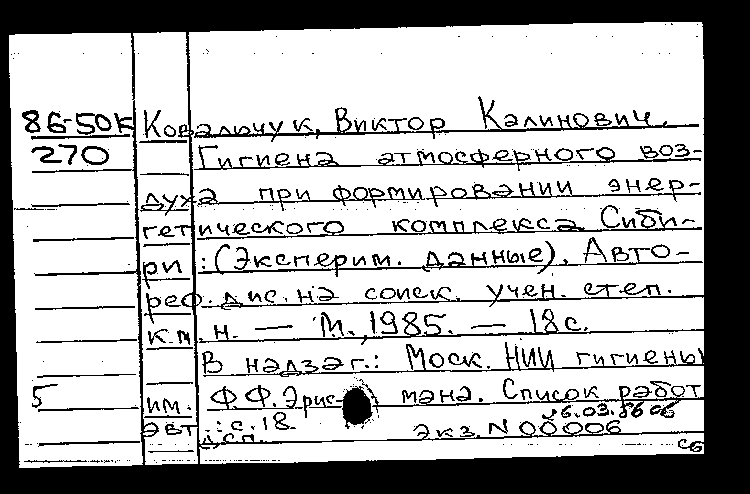 86-50К Ковальчук, Виктор Калинович.
270 Гигиена атмосферного воз-
духа при формировании энер-
гетического комплекса Сиби-
ри : (Эксперим. данные). Авто-
реф. дис. на соиск. учен. степ.
к.м.н. — М., 1985. — 18 с.
В надзаг.: Моск. НИИ гигиены
5 им. Ф.Ф. Эрис- мана. Список работ
авт.: с. 18 26.03.86 06
д.сп. Экз. N 00006
сб